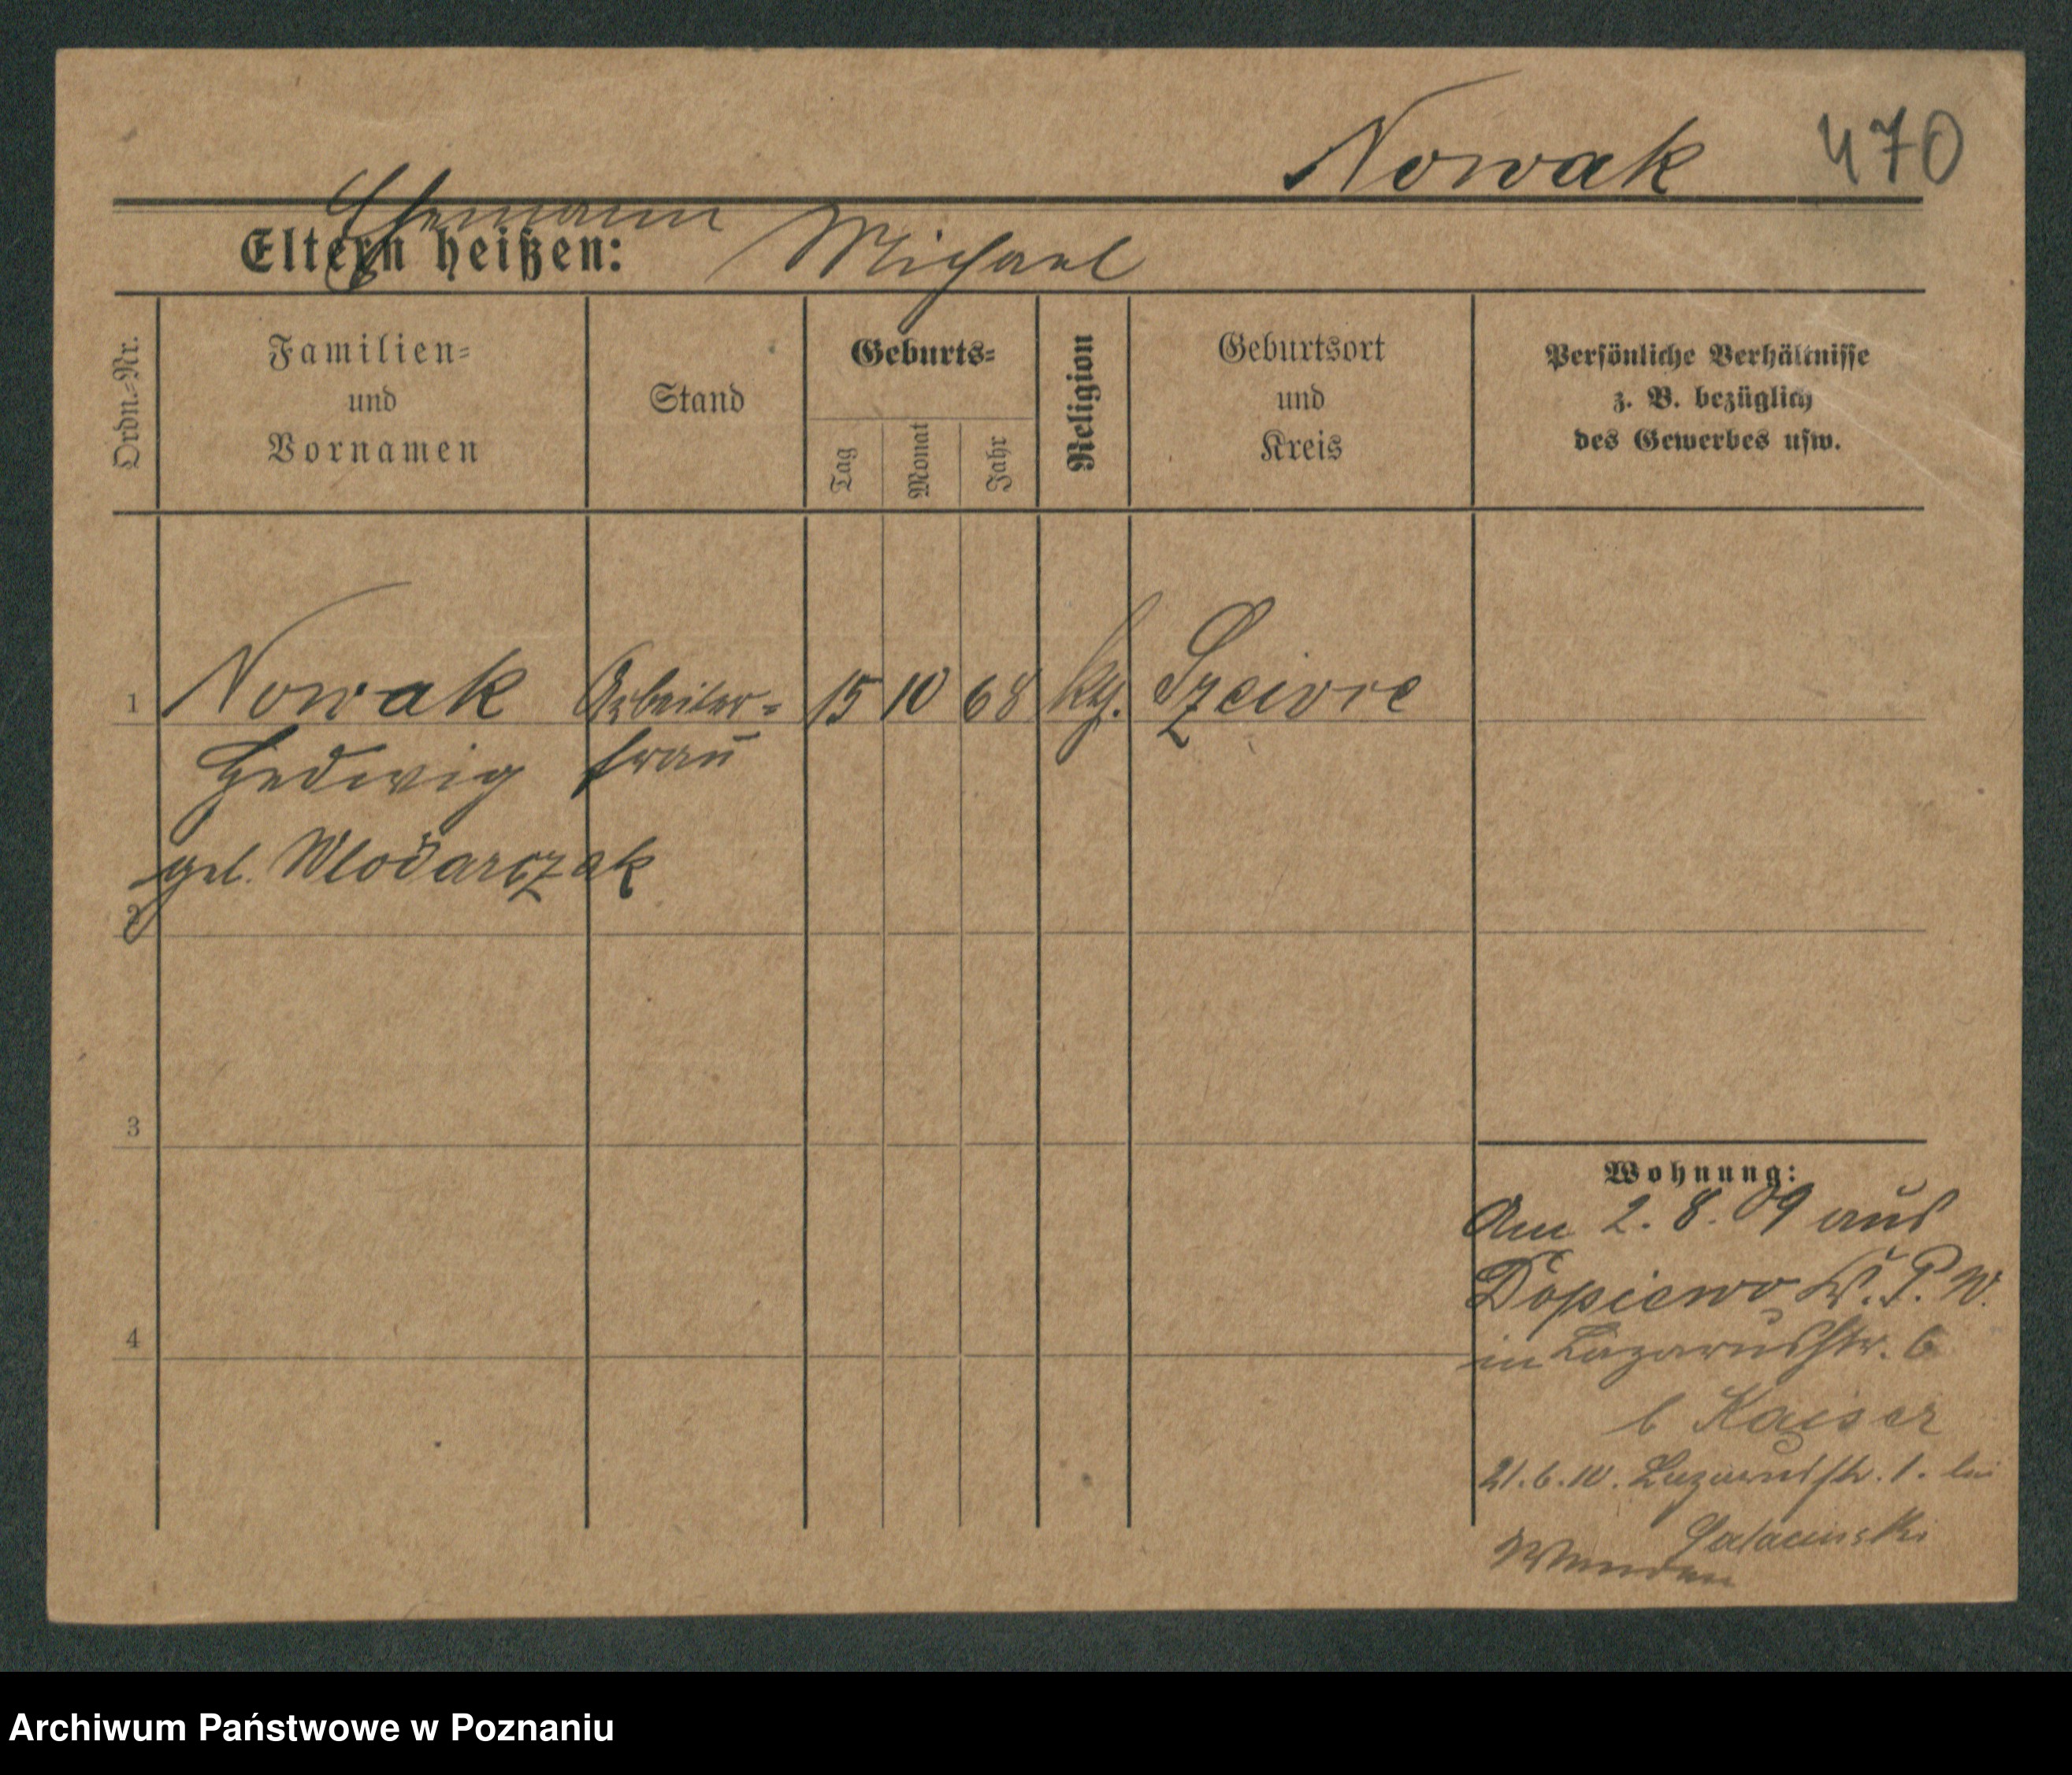 Nowak 470
Ehemann
Eltern heißen: Michael
Ordn.-Nr.
Familien-
und
Vornamen
Stand
Geburts-
Tag
Monat
Jahr
Religion
Geburtsort
und
Kreis
Persönliche Verhältnisse
z. B. bezüglich
des Gewerbes usw.
1 Nowak Arbeiter- 15 10 68 kg.
Hedwig frau
geb. Wlodarczak
2
3
4
Wohnung:
Am 2. 8. 09 aus
Dopiewo K. P. W.
in Lazarusstr. 6
b Kaiser
21. 6. 10. Lazarusstr. 1. bei
Archiwum Państwowe w Poznaniu